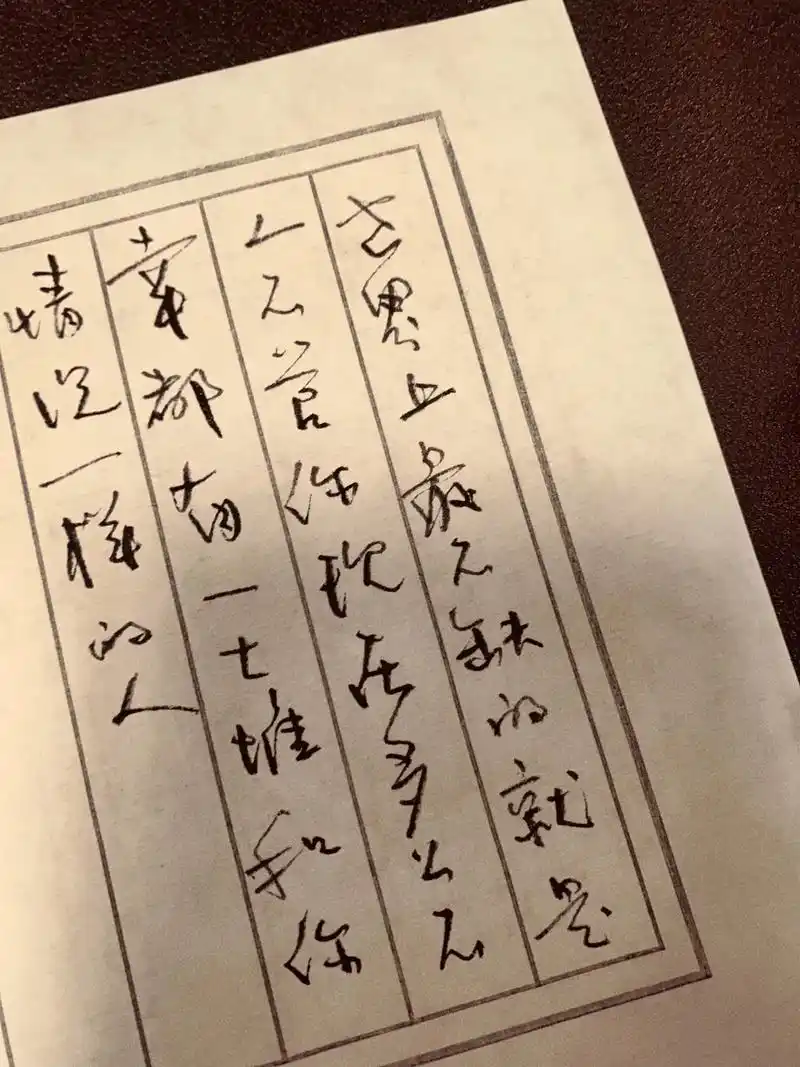 世界上最不缺的就是
人不管你现在多么不
幸都有一大堆和你
情况一样的人